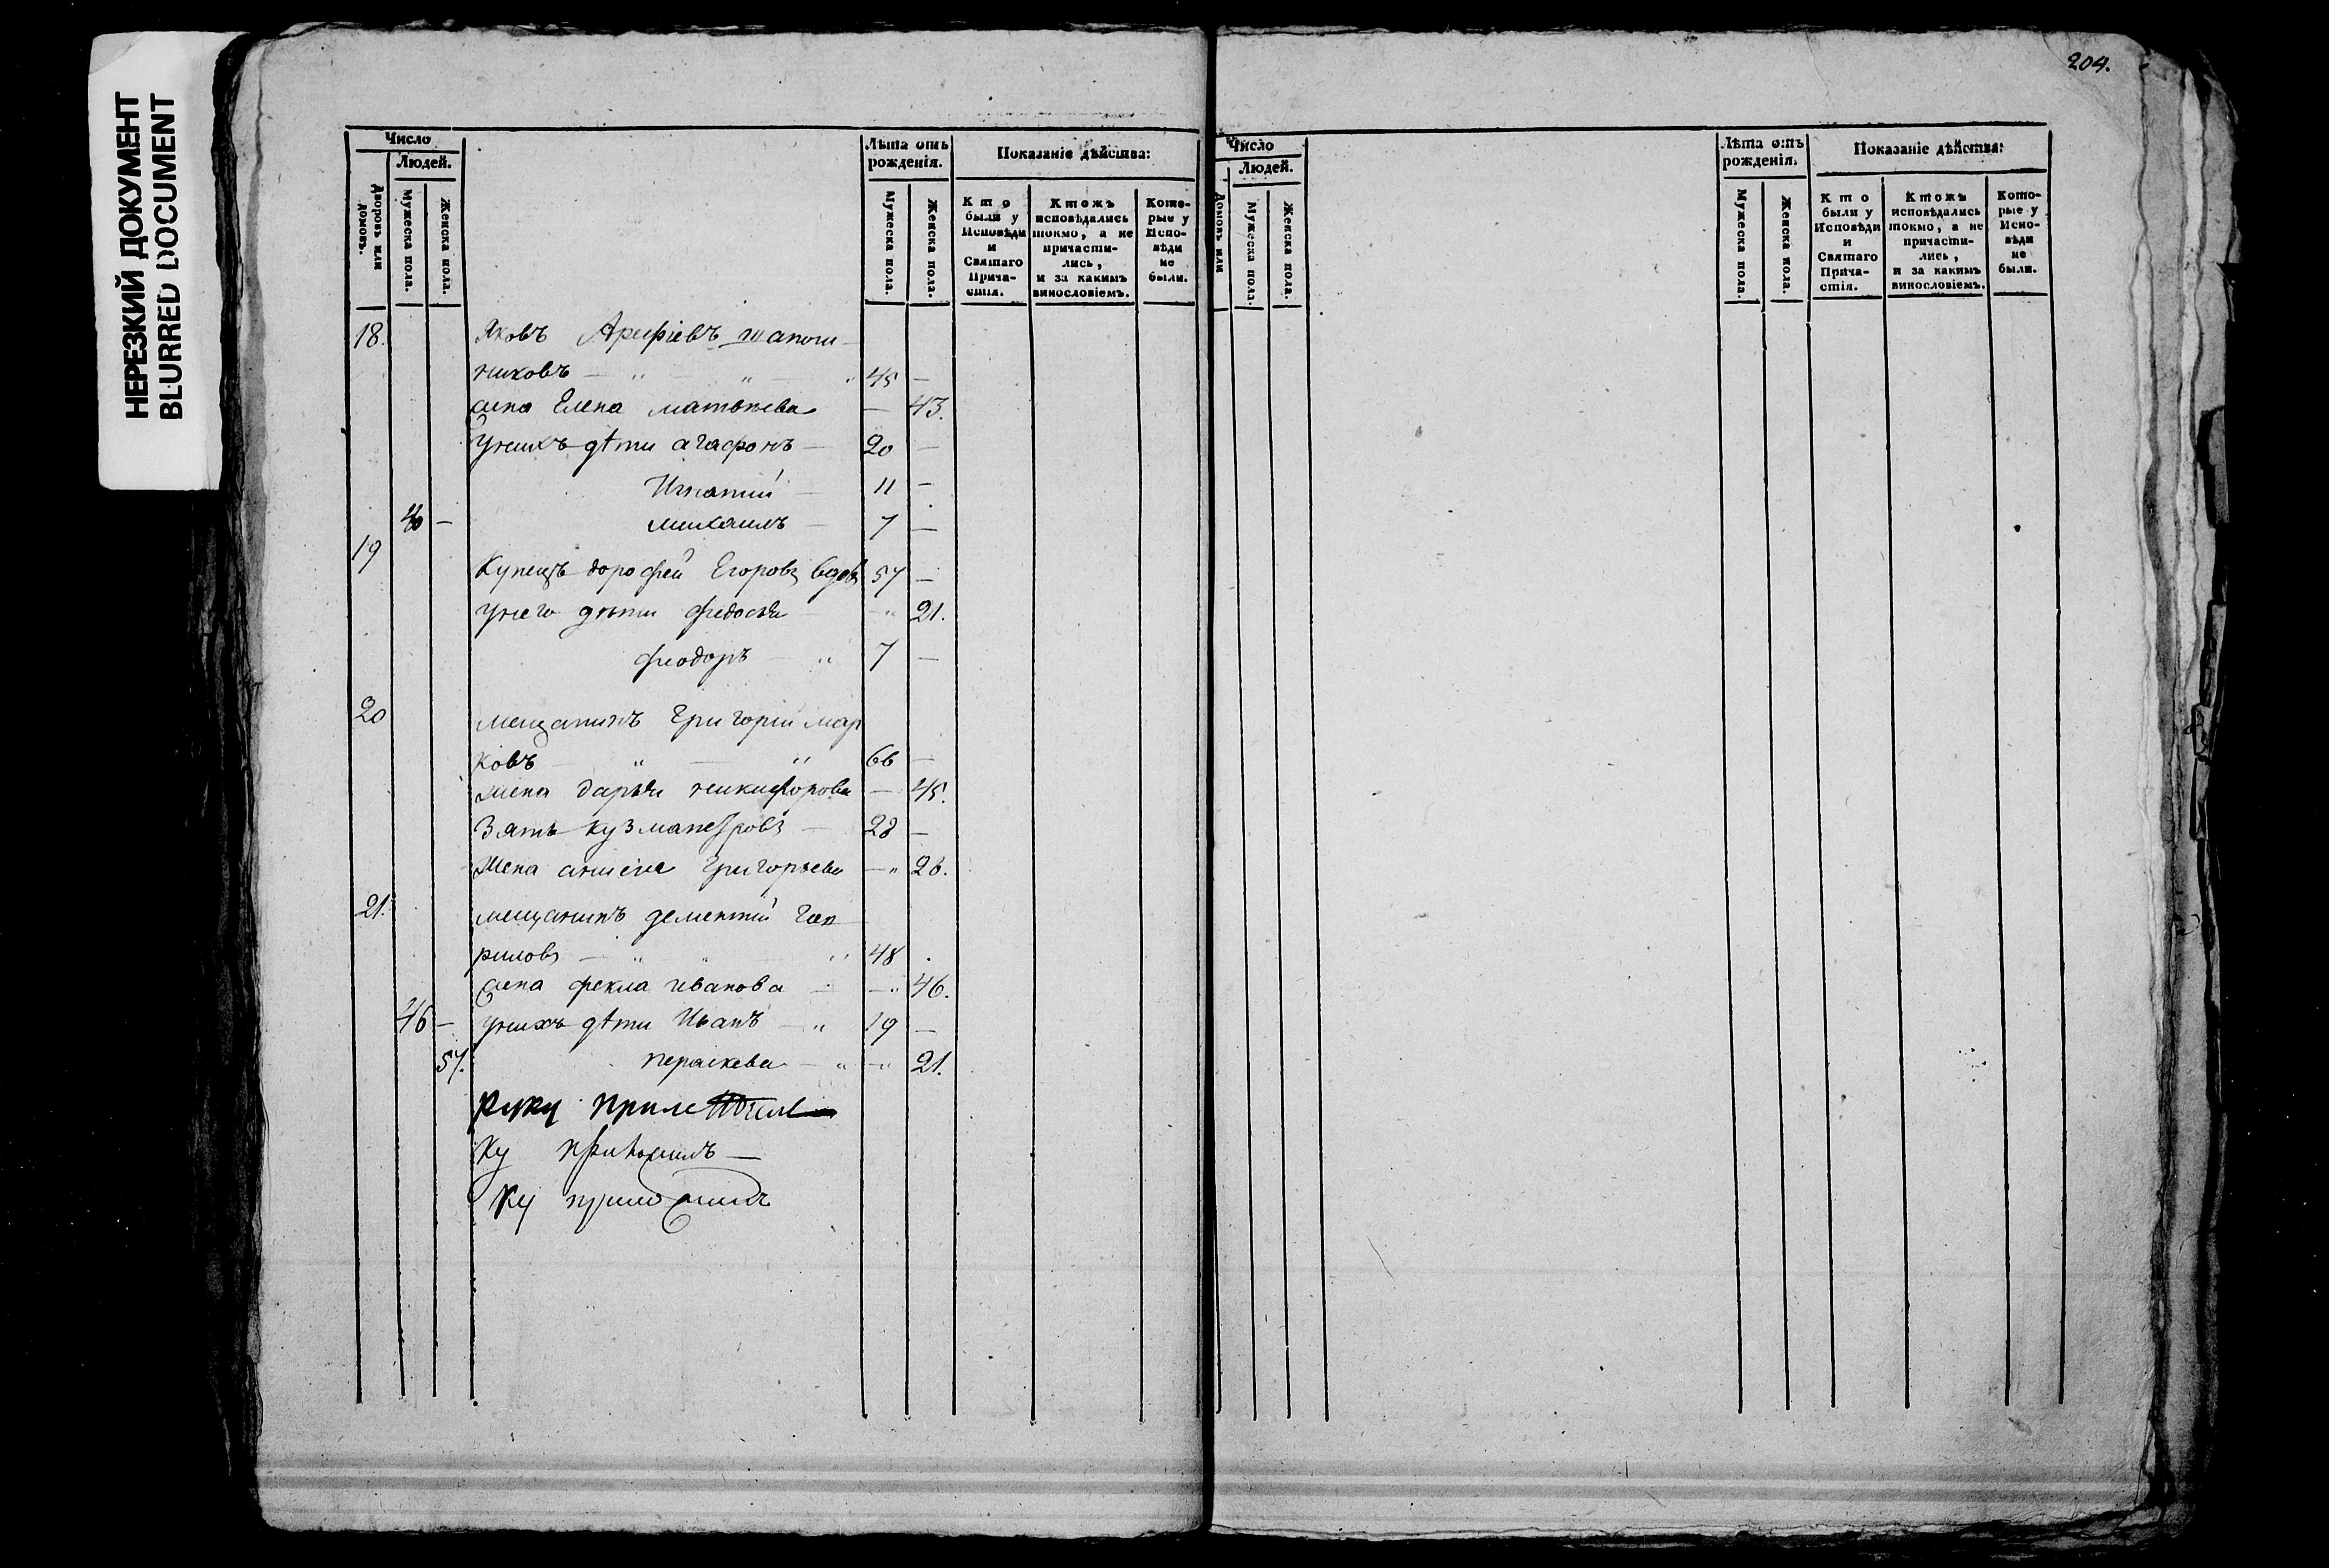 НЕРЕЗКИЙ ДОКУМЕНТ
BLURRED DOCUMENT
204.
Число
Людей.
Дворовъ или домовъ.
Мужеска пола.
Женска пола.
Лѣта отъ рожденія.
Мужеска пола.
Женска пола.
Показаніе дѣйства:
Кто были у Исповѣди и Святаго Прича-стія.
Ктожъ исповѣдались токмо, а не причасти-лись, и за какимъ винословіемъ.
Кото-рые у Испо-вѣди не были.
18. Яковъ Арефіевъ шапош
никовъ — 45 —
жена Елена матвѣева — 43.
унихъ дѣти агафонъ — 20 —
Игнатий — 11 —
40 — михаилъ — 7 —
19 Купецъ дорофей Егоровъ вдовъ 57 —
унего дѣти федосья — 21.
феодоръ — 7 —
20 мещанинъ Григорій мар
ковъ 66 —
жена дарья никифорова — 45.
Зять кузма петровъ — 28 —
Жена Григорьева — 26.
21. мещанинъ дементий гав
риловъ — 48
жена фекла иванова — 46.
46 — унихъ дѣти Иванъ — 19 —
57. параскева — 21.
руку
ку приложилъ —
ку приложилъ
Число
Людей.
Домовъ или
Мужеска пола.
Женска пола.
Лѣта отъ рожденія.
Мужеска пола.
Женска пола.
Показаніе дѣйства:
Кто были у Исповѣди и Святаго Прича-стія.
Ктожъ исповѣдались токмо, а не причасти-лись, и за какимъ винословіемъ.
Кото-рые у Испо-вѣди не были.